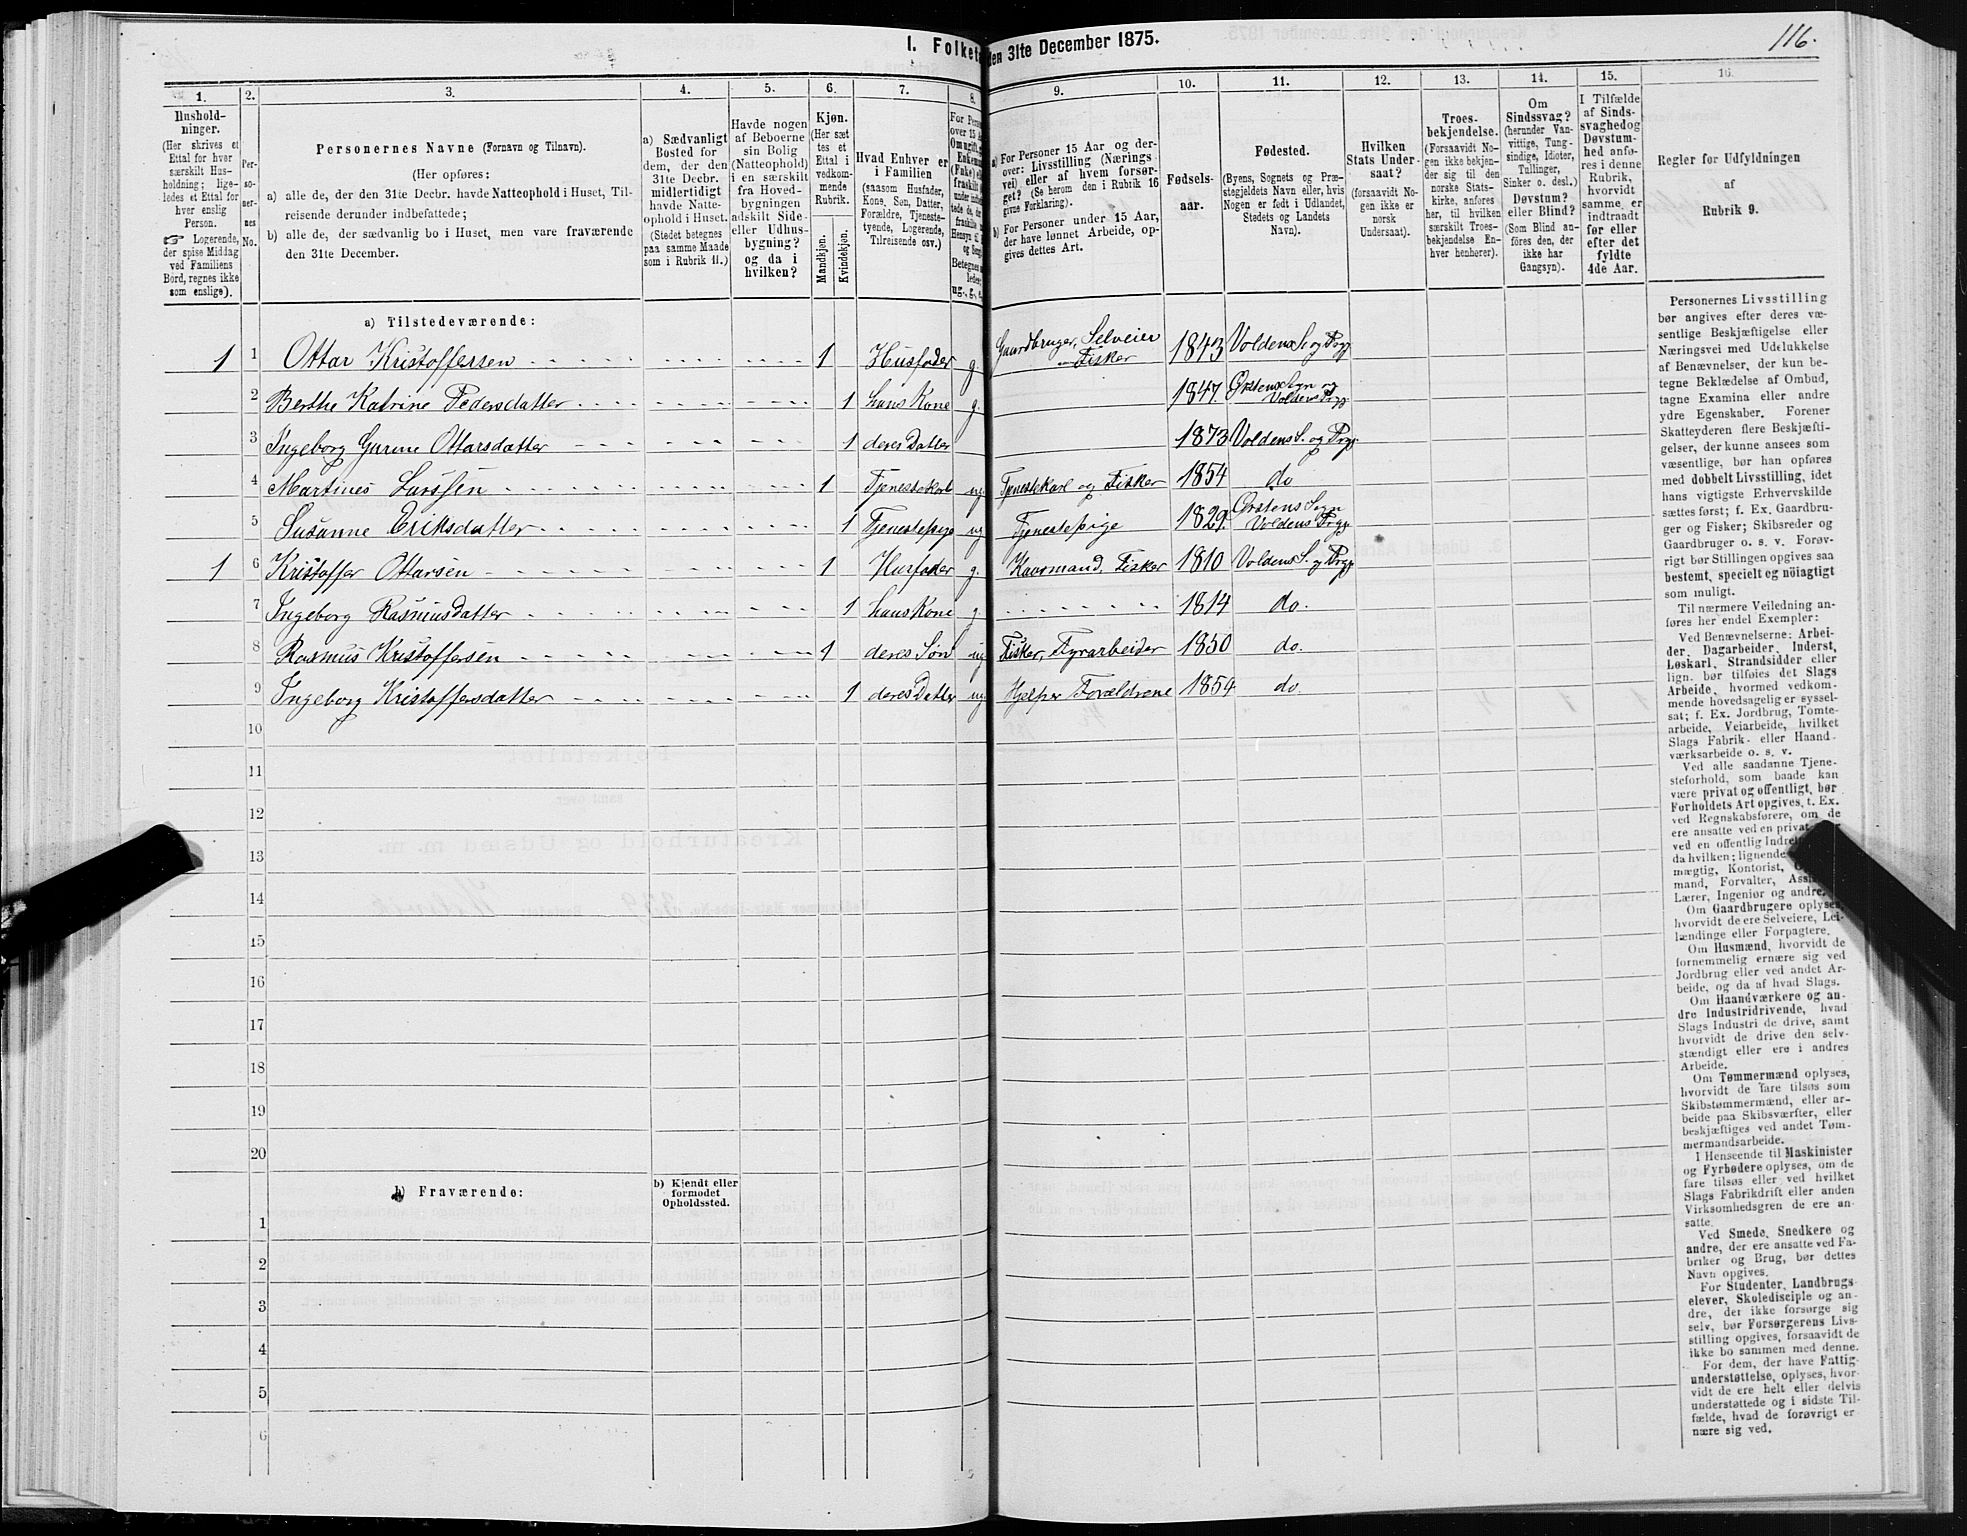 116.
I. Folket
den 31te December 1875.
1. 2. 3. 4. 5. 6. 7. 8. 9. 10. 11. 12. 13. 14. 15. 16.
Hushold-
ninger.
(Her skrives et
Ettal for hver
særskilt Hus-
holdning; lige-
ledes et Ettal for
hver enslig
Person.
☞ Logerende,
der spise Middag
ved Familiens
Bord, regnes ikke
som enslige).
Per-
so-
ner-
nes
No.
Personernes Navne (Fornavn og Tilnavn).
(Her opføres:
a) alle de, der den 31te Decbr. havde Natteophold i Huset, Til-
reisende derunder indbefattede;
b) alle de, der sædvanlig bo i Huset, men vare fraværende
den 31te December.
a) Sædvanligt
Bosted for
dem, der den
31te Decbr.
midlertidigt
havde Natte-
ophold i Huset.
(Stedet betegnes
paa samme Maade
som i Rubrik 11.)
Havde nogen
af Beboerne
sin Bolig
(Natteophold)
i en særskilt
fra Hoved-
bygningen
adskilt Side-
eller Udhus-
bygning?
og da i
hvilken?
Kjøn.
(Her sæt
tes et
Ettal i
vedkom-
mende
Rubrik.
Mandkjøn.
Kvindekjøn.
Hvad Enhver er
i Familien
(saasom Husfader,
Kone, Søn, Datter,
Forældre, Tjeneste-
tyende, Logerende,
Tilreisende osv.)
a) For Personer 15 Aar og der-
over: Livsstilling (Nærings
vei) eller af hvem forsør-
get? (Se herom den i Rubrik 16
givne Forklaring).
b) For Personer under 15 Aar,
der have lønnet Arbeide, op-
gives dettes Art.
Fødsels-
aar.
Fødested.
(Byens, Sognets og Præ-
stegjeldets Navn eller, hvis
Nogen er født i Udlandet,
Stedets og Landets
Navn).
Hvilken
Stats Under-
saat?
(forsaavidt No-
gen ikke er
norsk
Undersaat).
Troes-
bekjendelse.
(Forsaavidt No-
gen ikke bekjen-
der sig til den
norske Stats-
kirke, anføres
her, til hvilken
særskilt Troes-
bekjendelse En-
hver henhører).
Om
Sindssvag?
(herunder Van-
vittige, Tung-
sindige, Idioter,
Tullinger,
Sinker o. desl.)
Døvstum?
eller Blind?
(Som Blind an-
føres den, der
ikke har
Gangsyn).
I Tilfælde
af Sinds-
svaghed og
Døvstum-
hed anfø-
res i denne
Rubrik,
hvorvidt
samme er
indtraadt
før eller
efter det
fyldte
4de Aar.
Regler for Udfyldningen
af
Rubrik 9.
a) Tilstedeværende:
1 1 Ottar Kristoffersen 1 Husfader g. Gaardbruger, Selveier Fisker 1843 Voldens S. og Prgj
2 Berthe Katrine Pedersdatter 1 hans Kone g. 1847 Ørstens Sogn og Voldens Prgj.
3 Ingeborg Gurine Ottarsdatter 1 deres Datter 1873 Voldens S. og Prgj.
4 Martines Larssen 1 Tjenestekarl ug. Tjenestekarl og Fisker 1854 do
5 Susanne Eriksdatter 1 Tjenestepige ug Tjenestepige 1829. Ørstens Sogn Voldens Prgj.
1 6 Kristoffer Ottarsen 1 Husfader g. Kaarmand, Fisker 1810 Voldens S. og Prgj.
7 Ingeborg Rasmusdatter 1 hans Kone g. 1814 do.
8 Rasmus Kristoffersen 1 deres Søn ug Fisker, Fyrarbeider 1850 do.
9 Ingeborg Kristoffersdatter 1 deres Datter ug. Hjelper Forældrene 1854 do.
10
11
12
13
14
15
16
17
18
19
20
b) Fraværende:
b) Kjendt eller
formodet
Opholdssted.
1
2
3
4
5
6
Personernes Livsstilling
bør angives efter deres væ-
sentlige Beskjæftigelse eller
Næringsvei med Udelukkelse
af Benævnelser, der kun be-
tegne Beklædelse af Ombud,
tagne Examina eller andre
ydre Egenskaber. Forener
Skatteyderen flere Beskjæfti-
gelser, der kunne ansees som
væsentlige, bør han opføres
med dobbelt Livsstilling, idet
hans vigtigste Erhvervskilde
sættes først; f. Ex. Gaardbru-
ger og Fisker; Skibsreder og
Gaardbruger o. s. v. Forøv-
rigt bør Stillingen opgives saa
bestemt, specielt og nøiagtigt
som muligt.
Til nærmere Veiledning an-
føres her endel Exempler:
Ved Benævnelserne: Arbei-
der, Dagarbeider, Inderst,
Løskarl, Strandsidder eller
lign. bør tilføies det Slags
Arbeide, hvormed vedkom-
mende hovedsagelig er syssel-
sat; f. Ex. Jordbrug, Tomte-
arbeide, Veiarbeide, hvilket
Slags Fabrik- eller Haand-
værksarbeide o. s. v.
Ved alle saadanne Tjene-
steforhold, som baade kan
være privat og offentligt, bør
Forholdets Art opgives, t. Ex.
ved Regnskabsførere, om de
ere ansatte ved en privat
ved en offentlig
da hvilken; lignende
mægtig, Kontorist,
mand, Forvalter,
Lærer, Ingeniør og andre.
Om Gaardbrugere oplyses,
hvorvidt de ere Selveiere, Lei-
lændinge eller Forpagtere.
Om Husmænd, hvorvidt de
fornemmelig ernære sig ved
Jordbrug eller ved andet Ar-
beide, og da af hvad Slags.
Om Haandværkere og an-
dre Industridrivende, hvad
Slags Industri de drive, samt
hvorvidt de drive den selv-
stændigt eller ere i andres
Arbeide.
Om Tømmermænd oplyses,
hvorvidt de fare tilsøs som
Skibstømmermænd, eller ar-
beide paa Skibsværfter, eller
beskjæftiges ved andet Tøm-
mermandsarbeide.
I Henseende til Maskinister
og Fyrbødere oplyses, om de
fare tilsøs eller ved hvilket
Slags Fabrikdrift eller anden
Virksomhedsgren de ere an-
satte.
Ved Smede, Snedkere og
andre, der ere ansatte ved Fa-
briker og Brug, bør dettes
Navn opgives.
For Studenter, Landbrugs-
elever, Skoledisciple og an-
dre, der ikke forsørge sig
selv, bør Forsørgerens Livs-
stilling opgives, forsaavidt de
ikke bo sammen med denne.
For dem, der have Fattig-
understøttelse, oplyses, hvor-
vidt de ere helt eller delvis
understøttede og i sidste Til-
fælde, hvad de forøvrigt er-
nære sig ved.